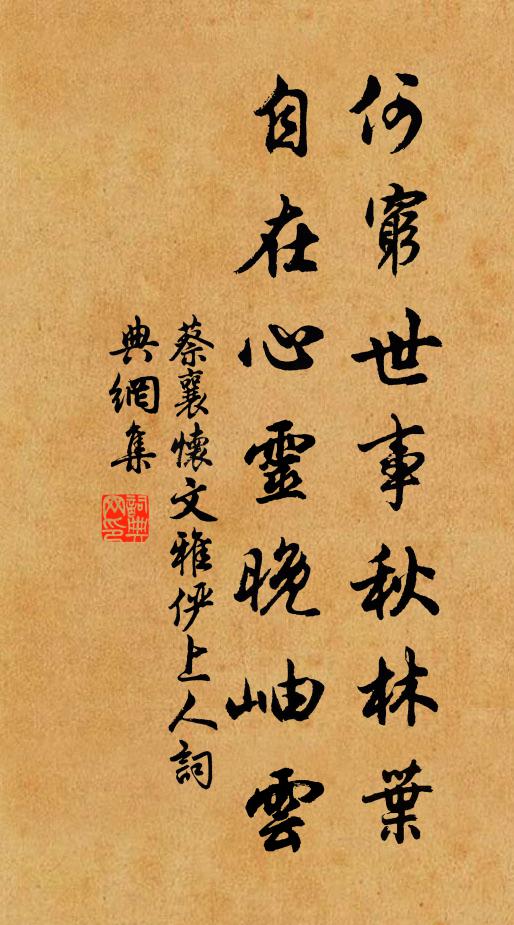 何窮世事秋林葉
自在心靈晚岫雲
蔡襄懷文雅伊上人詞
典網集
詞典
網印